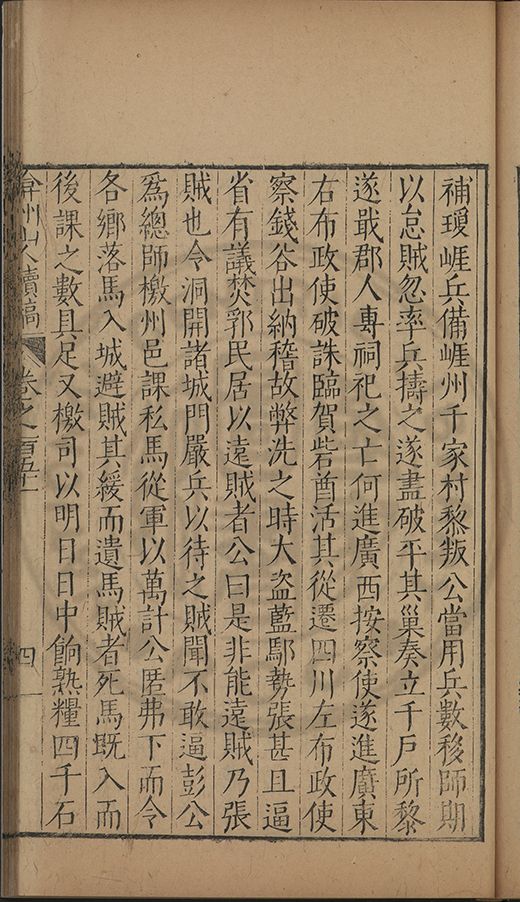 補瓊崕兵備崕州千家村黎叛公當用兵數移師期
以怠賊忽率兵擣之遂盡破平其巢奏立千戶所黎
遂戢郡人專祠祀之亡何進廣西按察使遂進廣東
右布政使破誅臨賀砦酋活其從遷四川左布政使
察錢谷出納稽故弊洗之時大盜藍鄢勢張甚且逼
省有議焚郭民居以遠賊者公曰是非能遠賊乃張
賊也令洞開諸城門嚴兵以待之賊聞不敢逼彭公
爲總師檄州邑課私馬從軍以萬計公匿弗下而令
各鄉落馬入城避賊其緩而遺馬賊者死馬既入而
後課之數具足又檄司以明日日中餉熟糧四千石
弇州山人續稿 卷之一百五十 四